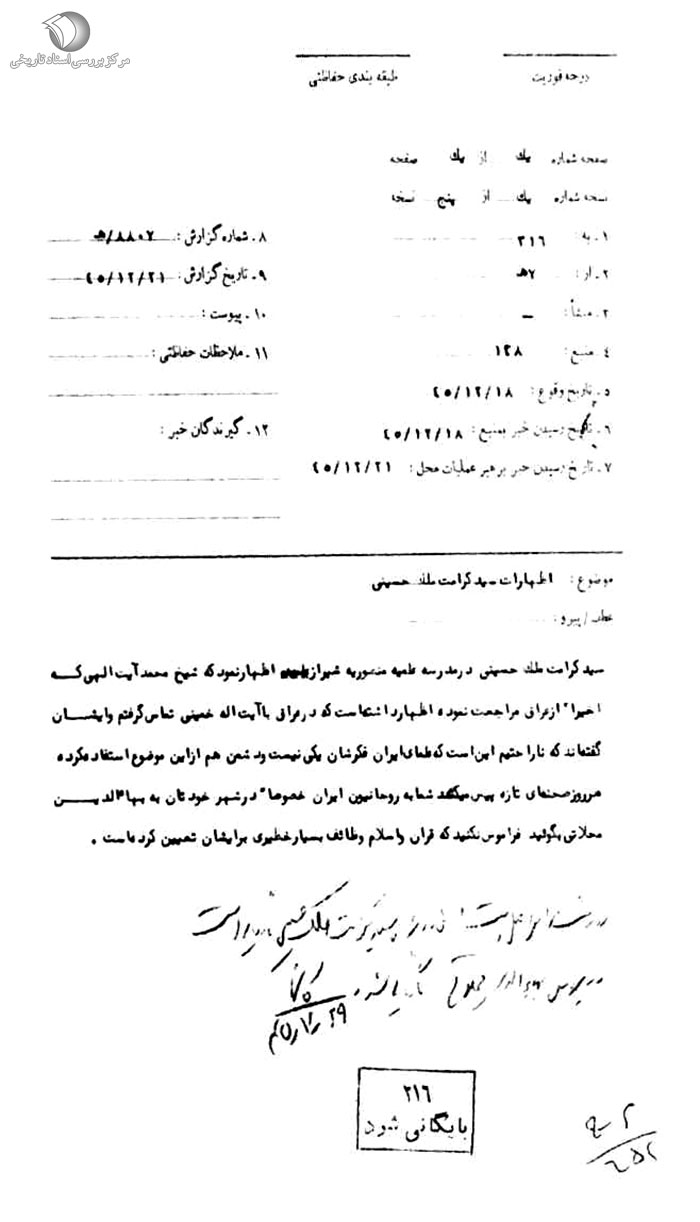 مرکز بررسی اسناد تاریخی
درجه فوریت
طبقه بندی حفاظتی
صفحه شماره یك از یك صفحه
نسخه شماره یك از پنج نسخه
۱ـ به : ۳۱۶
۲ـ از : ۷هـ
۳ـ منشأ : ـ
٤ـ منبع : ۱۳۸
۵ـ تاریخ وقوع : ٤۵/۱۲/۱۸
۶ـ تاریخ رسیدن خبر بمنبع : ٤۵/۱۲/۱۸
۷ـ تاریخ رسیدن خبر برهبر عملیات محل : ٤۵/۱۲/۲۱
۸ـ شماره گزارش : ۸۸۰۷/هـ
۹ـ تاریخ گزارش : ٤۵/۱۲/۲۱
۱۰ـ پیوست :
۱۱ـ ملاحظات حفاظتی :
۱۲ـ گیرندگان خبر :
موضوع : اظهارات سید کرامت ملك حسینی
عطف / پیرو :
سید کرامت ملك حسینی در مدرسه علمیه منصوریه شیراز اظهار نمود که شیخ محمد آیت الهی کـه
اخیرا" از عراق مراجعت نموده اظهار داشته است که در عراق با آیت اله خمینی تماس گرفتم و ایشـان
گفته اند که ناراحتیم این است که علمای ایران فکرشان یکی نیست و دشمن هم از این موضوع استفاده کرده
هر روز صحنه ای تازه پیش میکند شما به روحانیون ایران خصوصا" در شهر خودتان به بهاءالدیـــن
محلاتی بگوئید فراموش نکنید که قرآن و اسلام وظائف بسیار خطیری برایشان تعیین کرده است .
۳۱۶
بایگانی شود